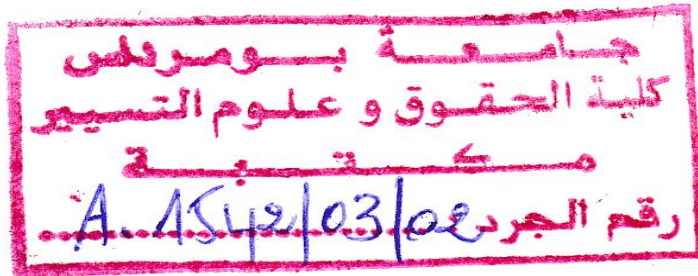 جامعة بومرداس
كلية الحقوق و علوم التسيير
مكتبة
رقم الجرد A. 1542/03/02